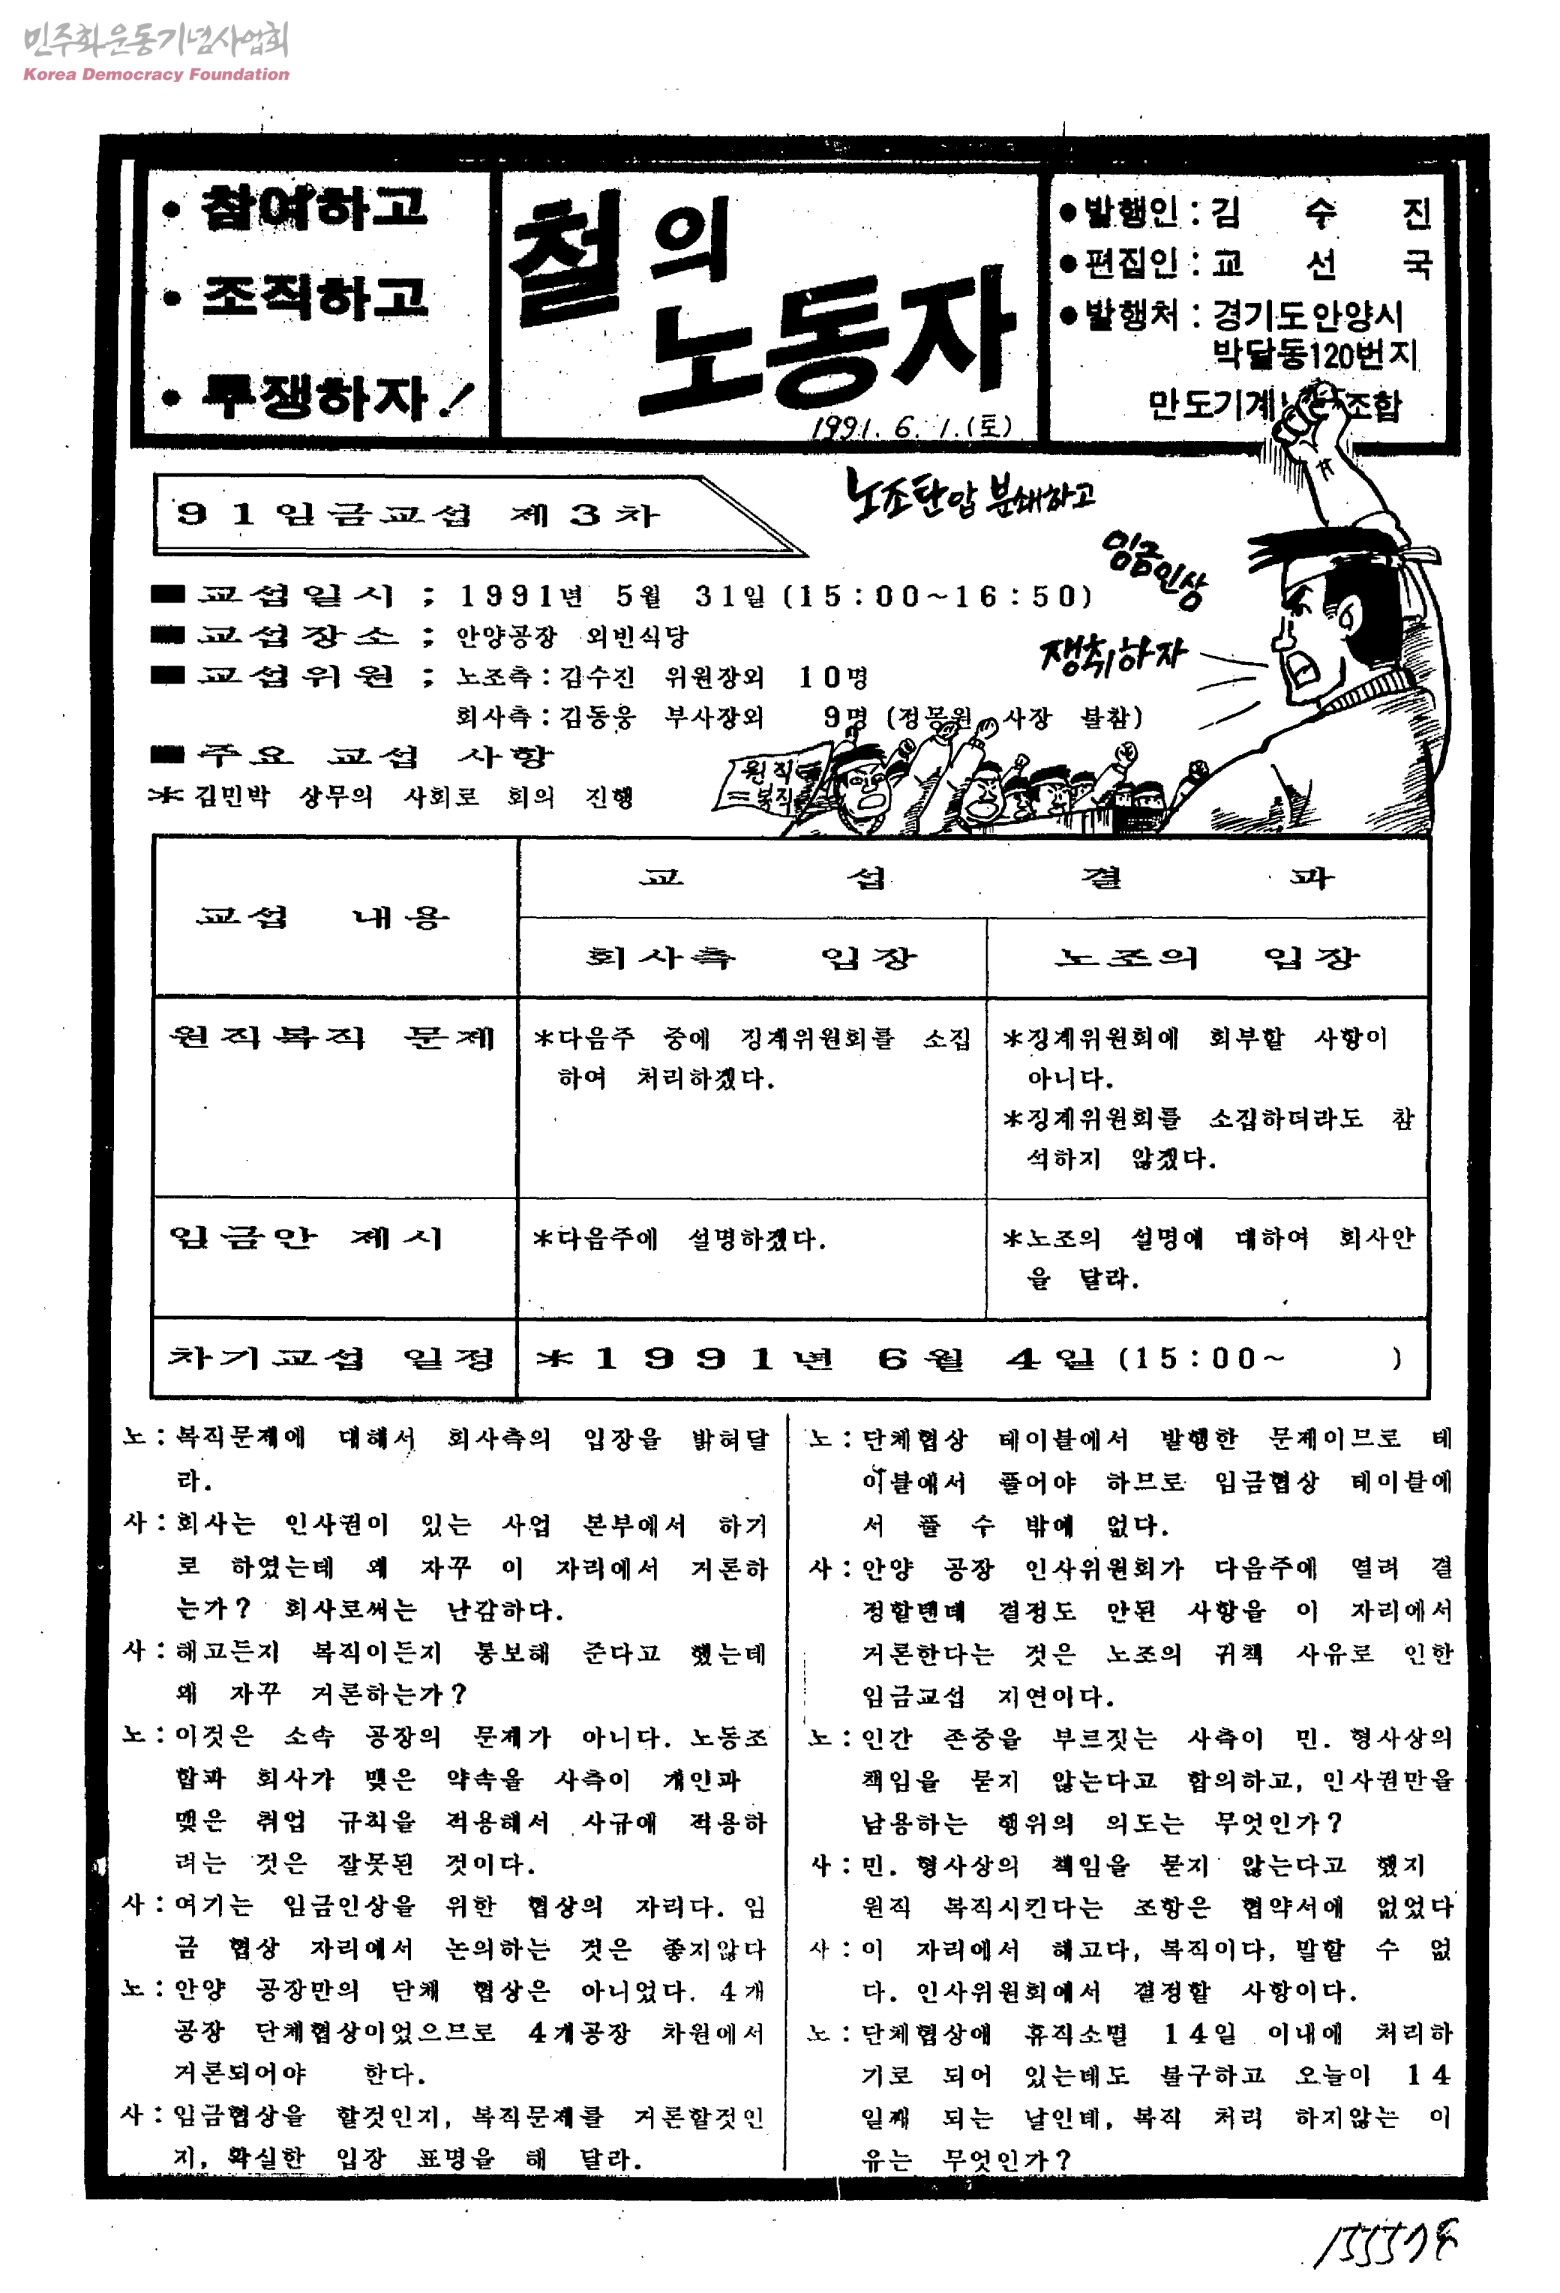 민주화운동기념사업회
Korea Democracy Foundation
• 참여하고
• 조직하고
• 투쟁하자!
철의
노동자
1991. 6. 1.(토)
●발행인 : 김 수 진
●편집인 : 교 선 국
●발행처 : 경기도안양시
박달동120번지
만도기계 조합
노조탄압 분쇄하고
임금인상
쟁취하자
91임금교섭 제3차
■교섭일시 ; 1991년 5월 31일(15:00~16:50)
■교섭장소 ; 안양공장 외빈식당
■교섭위원 ; 노조측:김수진 위원장외 10명
회사측:김동웅 부사장외 9명(정몽원 사장 불참)
■주요 교섭 사항
*김민박 상무의 사회로 회의 진행
원직
복직
교섭 내용
교 섭 결 과
회사측 입장
노조의 입장
원직복직 문제
*다음주 중에 징계위원회를 소집
하여 처리하겠다.
*징계위원회에 회부할 사항이
아니다.
*징계위원회를 소집하더라도 참
석하지 않겠다.
임금안 제시
*다음주에 설명하겠다.
*노조의 설명에 대하여 회사안
을 달라.
차기교섭 일정
*1991년 6월 4일(15:00~ )
노:복직문제에 대해서 회사측의 입장을 밝혀달
라.
사:회사는 인사권이 있는 사업 본부에서 하기
로 하였는데 왜 자꾸 이 자리에서 거론하
는가? 회사로써는 난감하다.
사:해고든지 복직이든지 통보해 준다고 했는데
왜 자꾸 거론하는가?
노:이것은 소속 공장의 문제가 아니다. 노동조
합과 회사가 맺은 약속을 사측이 개인과
맺은 취업 규칙을 적용해서 사규에 적용하
려는 것은 잘못된 것이다.
사:여기는 임금인상을 위한 협상의 자리다. 임
금 협상 자리에서 논의하는 것은 좋지않다
노:안양 공장만의 단체 협상은 아니었다. 4개
공장 단체협상이었으므로 4개공장 차원에서
거론되어야 한다.
사:임금협상을 할것인지, 복직문제를 거론할것인
지, 확실한 입장 표명을 해 달라.
노:단체협상 테이블에서 발행한 문제이므로 테
이블에서 풀어야 하므로 임금협상 테이블에
서 풀 수 밖에 없다.
사:안양 공장 인사위원회가 다음주에 열려 결
정할텐데 결정도 안된 사항을 이 자리에서
거론한다는 것은 노조의 귀책 사유로 인한
임금교섭 지연이다.
노:인간 존중을 부르짖는 사측이 민. 형사상의
책임을 묻지 않는다고 합의하고, 인사권만을
남용하는 행위의 의도는 무엇인가?
사:민. 형사상의 책임을 묻지 않는다고 했지
원직 복직시킨다는 조항은 협약서에 없었다
사:이 자리에서 해고다, 복직이다, 말할 수 없
다. 인사위원회에서 결정할 사항이다.
노:단체협상에 휴직소멸 14일 이내에 처리하
기로 되어 있는데도 불구하고 오늘이 14
일째 되는 날인데, 복직 처리 하지않는 이
유는 무엇인가?